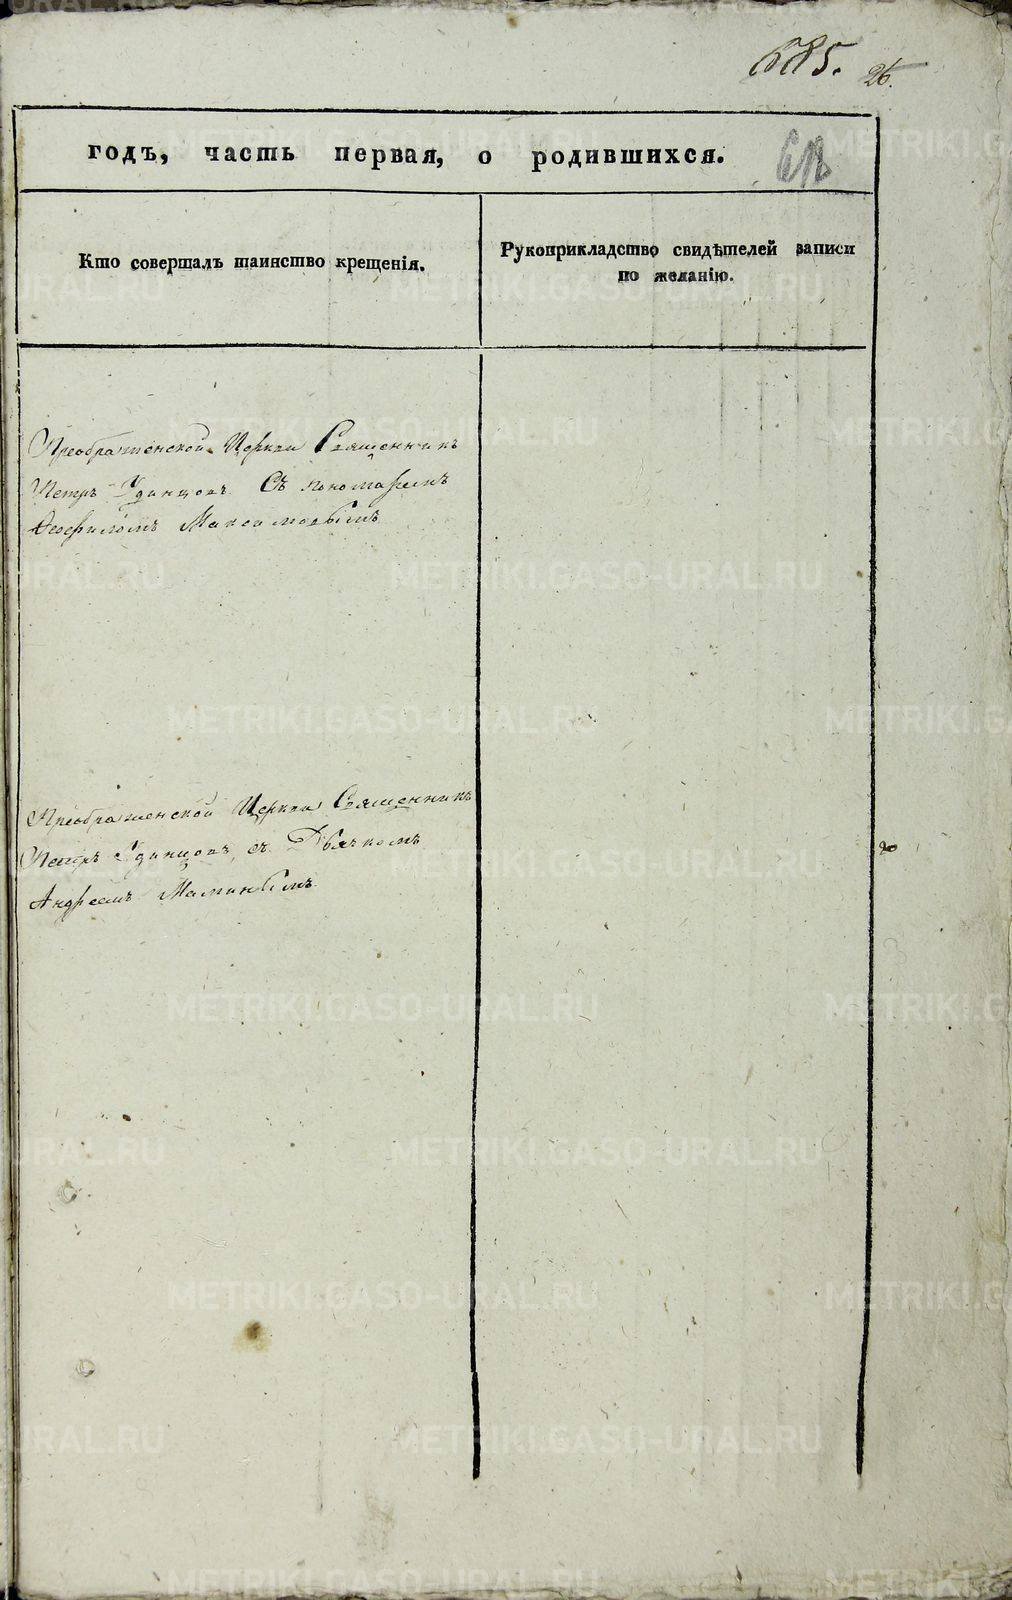 685. 26.
годъ, часть первая, о родившихся.
Кто совершалъ таинство крещенія.
Рукоприкладство свидѣтелей записи
по желанію.
Преображенской Церкви Священникъ
Петръ Удинцовъ Съ пономаремъ
Ѳеофиломъ Максимовымъ
Преображенской Церкви Священникъ
Петръ Удинцовъ, съ Дьячкомъ
Андреемъ Маминымъ
METRIKI.GASO-URAL.RU